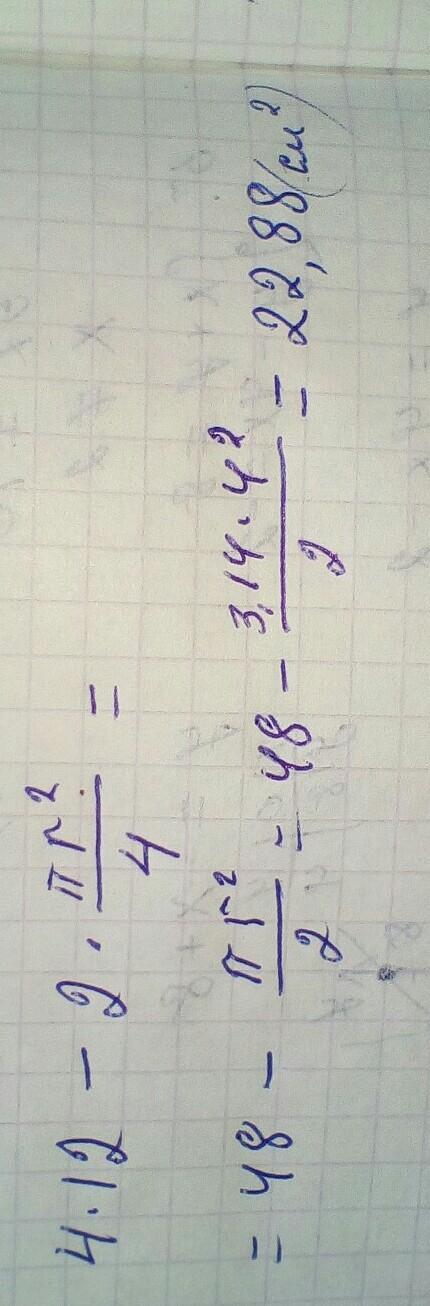 4·12 - 2·πr²/4 =
= 48 - πr²/2 = 48 - 3,14·4²/2 = 22,88(см²)